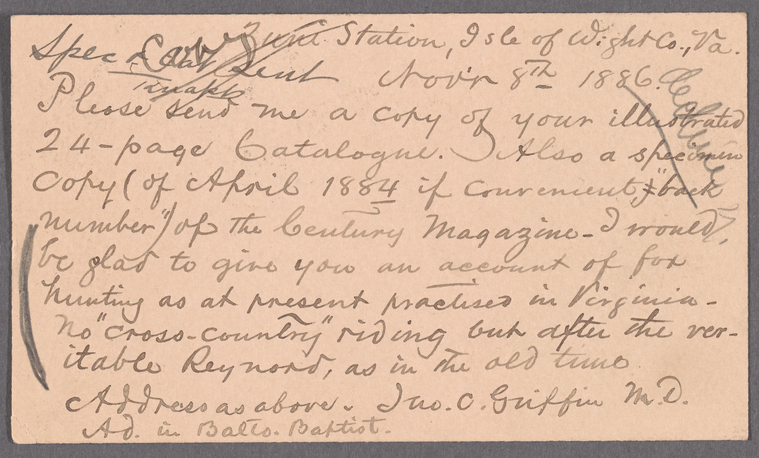 Zuni Station, Isle of Wight Co., Va.
Spec & Cat Sent
Nov'r 8th 1886.
Please send me a copy of your illustrated
24-page Catalogue. Also a specimen
copy (of April 1884 if convenient, "back
number") of the Century Magazine - I would
be glad to give you an account of fox
hunting as at present practised in Virginia -
No "cross-country" riding but after the ver-
itable Reynard, as in the old time
Address as above. Jno. C. Griffin M.D.
Ad. in Balto. Baptist.